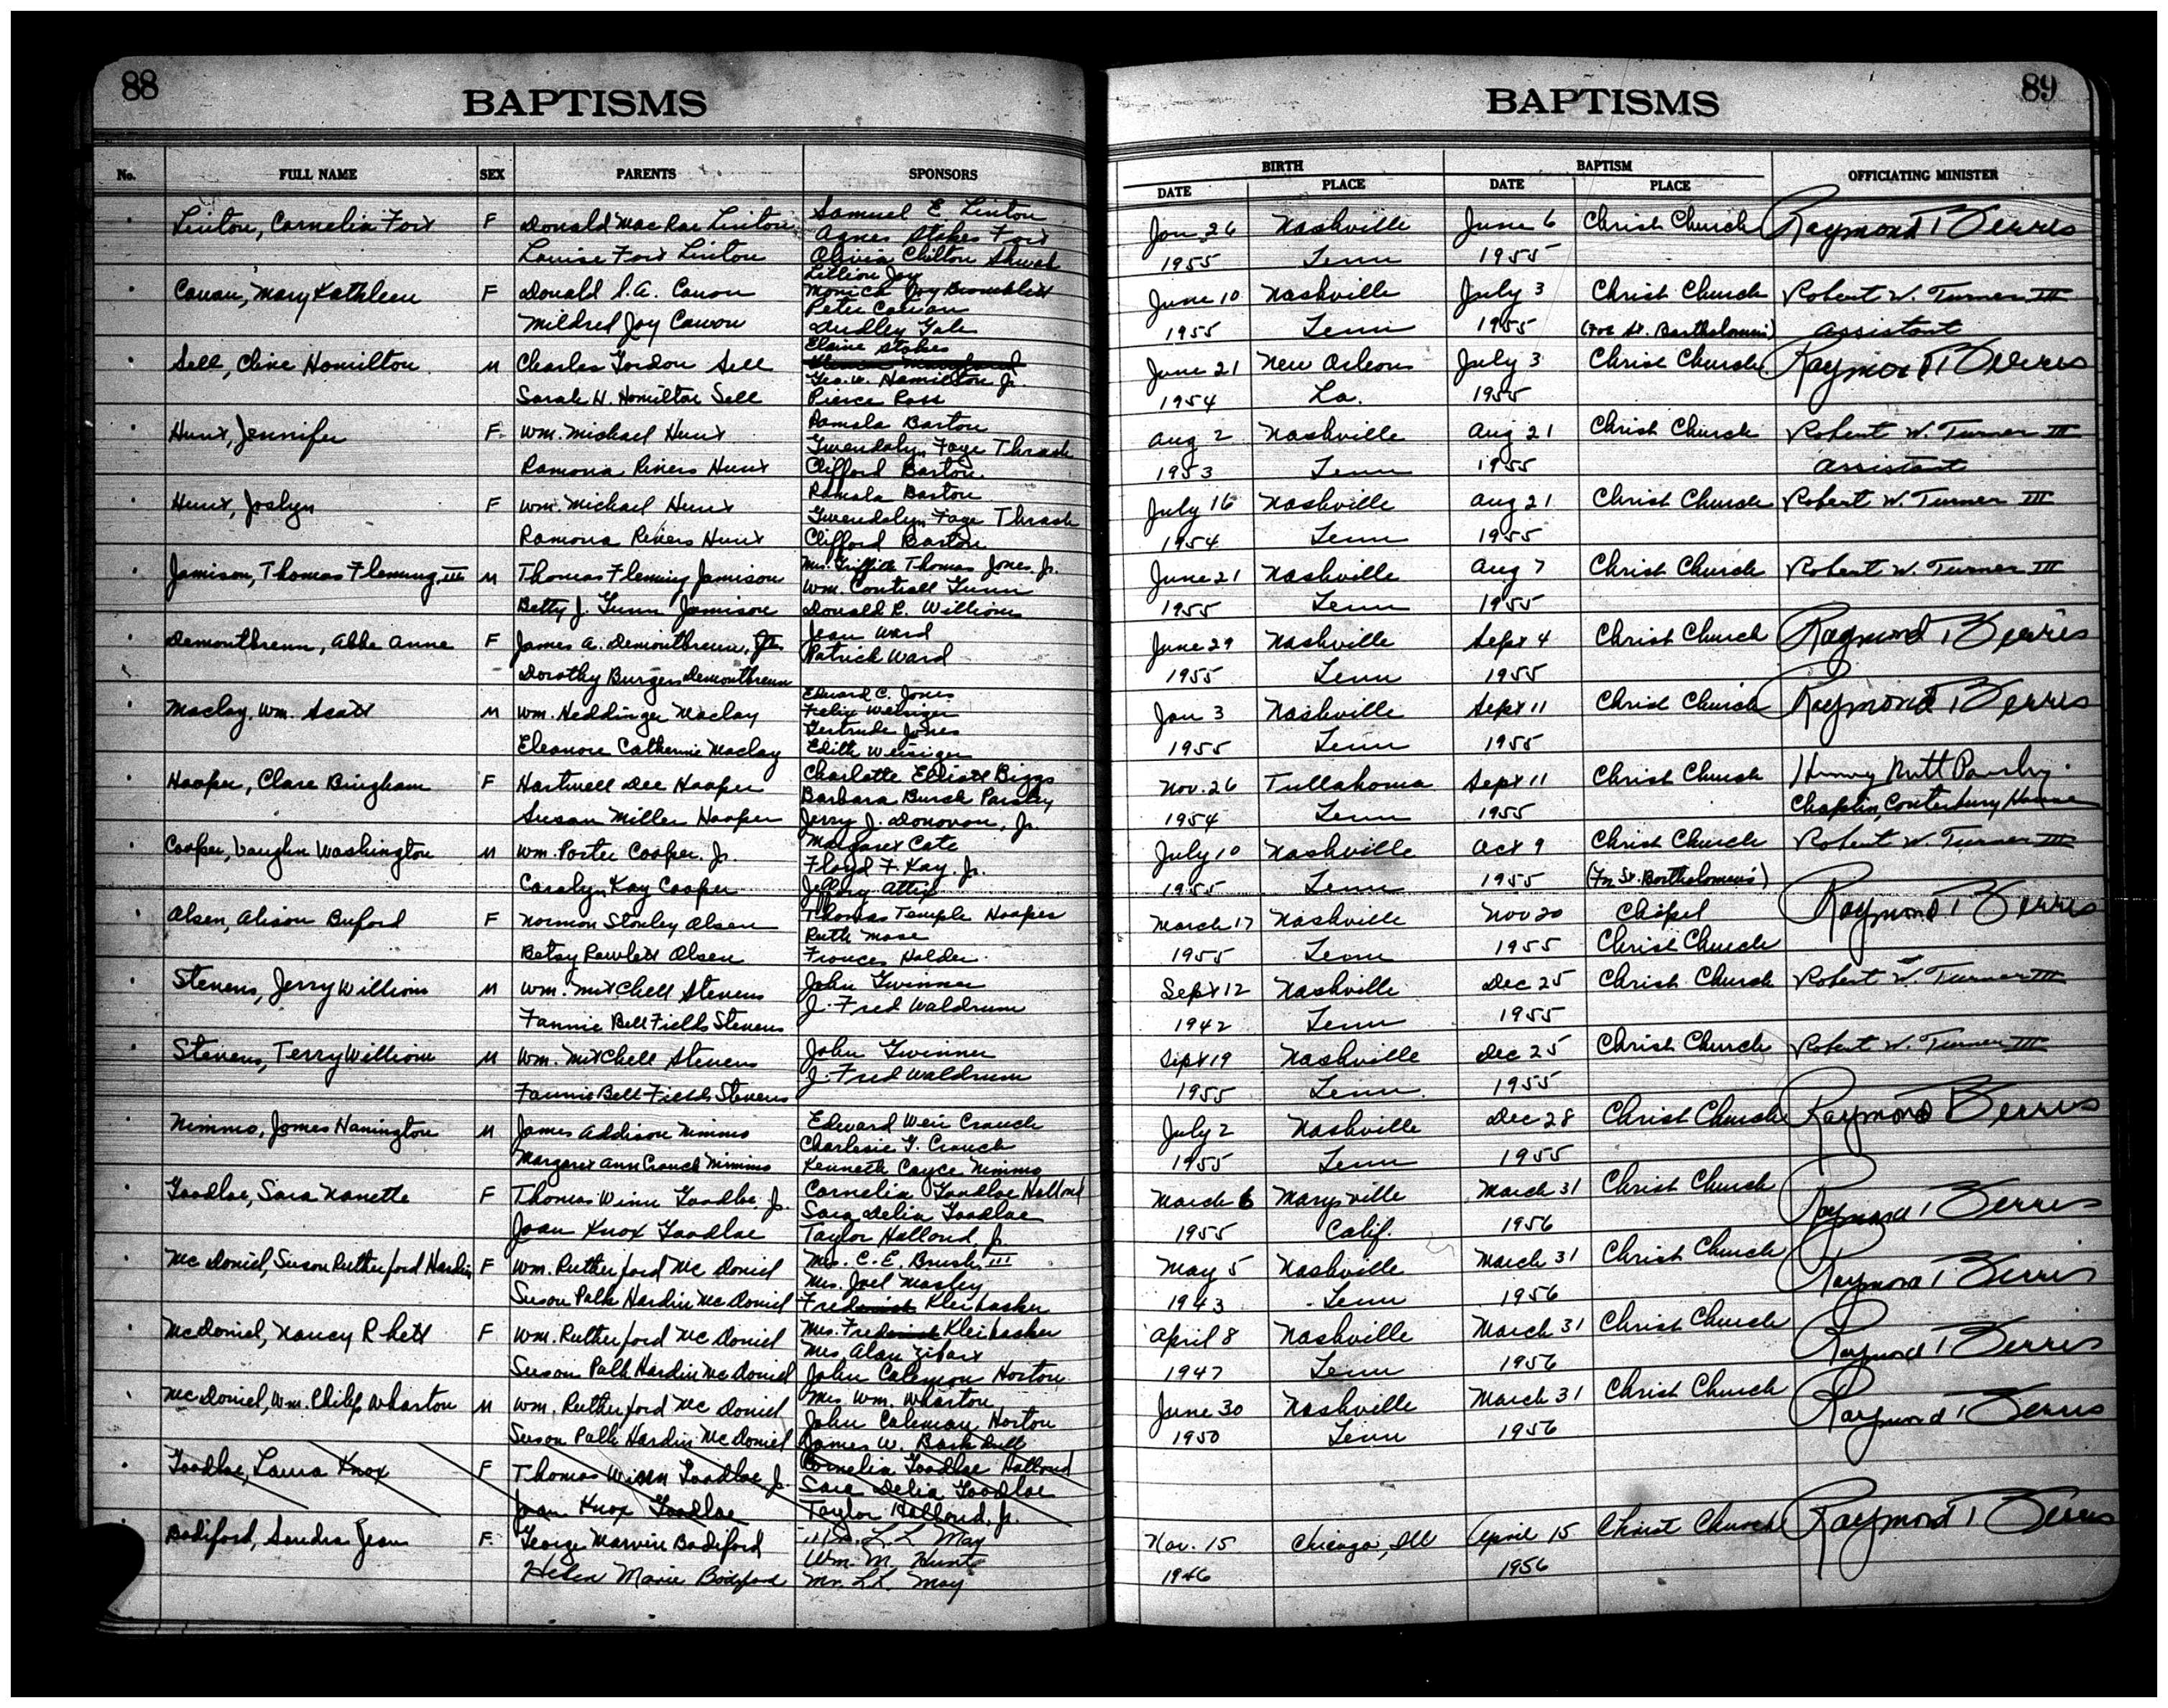 88
BAPTISMS
No. FULL NAME SEX PARENTS SPONSORS
Linton, Cornelia Fort F Donald MacRae Linton Samuel E. Linton
Agnes Stokes Fort
Louise Fort Linton Olivia Chilton
Lillian Joy
Cowan, Mary Kathleen F Donald A. Cowan Monica Joy
Peter Cowan
Mildred Joy Cowan Dudley Gale
Elaine Stokes
Sell, Clive Hamilton M Charles Gordon Sell
Geo. W. Hamilton Jr.
Sarah H. Hamilton Sell Pierce Ross
Pamela Barton
Hunt, Jennifer F Wm. Michael Hunt Gwendolyn Faye Thrash
Ramona Rivers Hunt Clifford Barton
Pamela Barton
Hunt, Joslyn F Wm. Michael Hunt Gwendolyn Faye Thrash
Ramona Rivers Hunt Clifford Barton
Jamison, Thomas Fleming, III M Thomas Fleming Jamison Mrs. Griffith Thomas Jones, Jr.
Wm. Gunn
Betty J. Gunn Jamison Donald R. Williams
Demontbreun, Abbe Anne F James A. Demontbreun, Jean Ward
Patrick Ward
Dorothy Burgess Demontbreun
Edward C. Jones
Maclay, Wm. Scott M Wm. Heddinger Maclay Felix Weisiger
Gertrude Jones
Eleanore Catherine Maclay Edith Weisiger
Hooper, Clare Bingham F Hartwell Dee Hooper Charlotte Elliott Biggs
Barbara Burch Parsley
Susan Miller Hooper Jerry J. Donovan, Jr.
Cooper, Vaughn Washington M Wm. Porter Cooper, Jr. Margaret Cate
Floyd F. Kay, Jr.
Carolyn Kay Cooper Jeffory Attix
Olsen, Alison Buford F Norman Stanley Olsen Thomas Temple Hooper
Ruth Mase
Betsy Rowlett Olsen Frances Holder
Stevens, Jerry William M Wm. Mitchell Stevens John Gwinner
J. Fred Waldrum
Fannie Bell Fields Stevens
Stevens, Terry William M Wm. Mitchell Stevens John Gwinner
J. Fred Waldrum
Fannie Bell Fields Stevens
Nimmo, James Hanington M James Addison Nimmo Edward Weir Crouch
Charlesie G. Crouch
Margaret Ann Crouch Nimmo Kenneth Cayce Nimmo
Goodloe, Sara Nanette F Thomas Winn Goodloe, Jr. Cornelia Goodloe Holland
Sara Delia Goodloe
Joan Knox Goodloe Taylor Holland, Jr.
McDaniel, Susan Rutherford Hardin F Wm. Rutherford McDaniel Mrs. C. E. Brush, III
Mrs. Joel Mosley
Susan Polk Hardin McDaniel Frederick Kleibacker
McDaniel, Nancy Rhett F Wm. Rutherford McDaniel Mrs. Frederick Kleibacker
Mrs. Alan Zibart
Susan Polk Hardin McDaniel John Coleman Horton
McDaniel, Wm. Philip Wharton M Wm. Rutherford McDaniel Mrs. Wm. Wharton
John Coleman Horton
Susan Polk Hardin McDaniel James W.
Goodloe, Laura Knox F Thomas Winn Goodloe, Jr. Cornelia Goodloe Holland
Sara Delia Goodloe
Joan Knox Goodloe Taylor Holland, Jr.
Bodiford, Sandra Jean F. George Marvin Bodiford L. L. May
Wm. M. Hunt
Helen Marie Bodiford Mr. L. L. May
89
BAPTISMS
BIRTH BAPTISM OFFICIATING MINISTER
DATE PLACE DATE PLACE
Jan 26 Nashville June 6 Christ Church Raymond T. Ferris
1955 Tenn 1955
June 10 Nashville July 3 Christ Church Robert W. Turner III
1955 Tenn 1955 (For St. Bartholomew) Assistant
June 21 New Orleans July 3 Christ Church Raymond T. Ferris
1954 La. 1955
Aug 2 Nashville Aug 21 Christ Church Robert W. Turner III
1953 Tenn 1955 Assistant
July 16 Nashville Aug 21 Christ Church Robert W. Turner III
1954 Tenn 1955
June 21 Nashville Aug 7 Christ Church Robert W. Turner III
1955 Tenn 1955
June 29 Nashville Sept 4 Christ Church Raymond T. Ferris
1955 Tenn 1955
Jan 3 Nashville Sept 11 Christ Church Raymond T. Ferris
1955 Tenn 1955
Nov. 26 Tullahoma Sept 11 Christ Church Henry Nutt Parsley
1954 Tenn 1955 Chaplin, Canterbury House
July 10 Nashville Oct 9 Christ Church Robert W. Turner III
1955 Tenn 1955 (For St. Bartholomew's)
March 17 Nashville Nov 20 Chapel Raymond T. Ferris
1955 Tenn 1955 Christ Church
Sept 12 Nashville Dec 25 Christ Church Robert W. Turner III
1942 Tenn 1955
Sept 19 Nashville Dec 25 Christ Church Robert W. Turner III
1955 Tenn. 1955
July 2 Nashville Dec 28 Christ Church Raymond Ferris
1955 Tenn 1955
March 6 Marysville March 31 Christ Church Raymond T. Ferris
1955 Calif. 1956
May 5 Nashville March 31 Christ Church Raymond T. Ferris
1943 Tenn 1956
April 8 Nashville March 31 Christ Church Raymond T. Ferris
1947 Tenn 1956
June 30 Nashville March 31 Christ Church Raymond T. Ferris
1950 Tenn 1956
Nov. 15 Chicago, Ill April 15 Christ Church Raymond T. Ferris
1946 1956